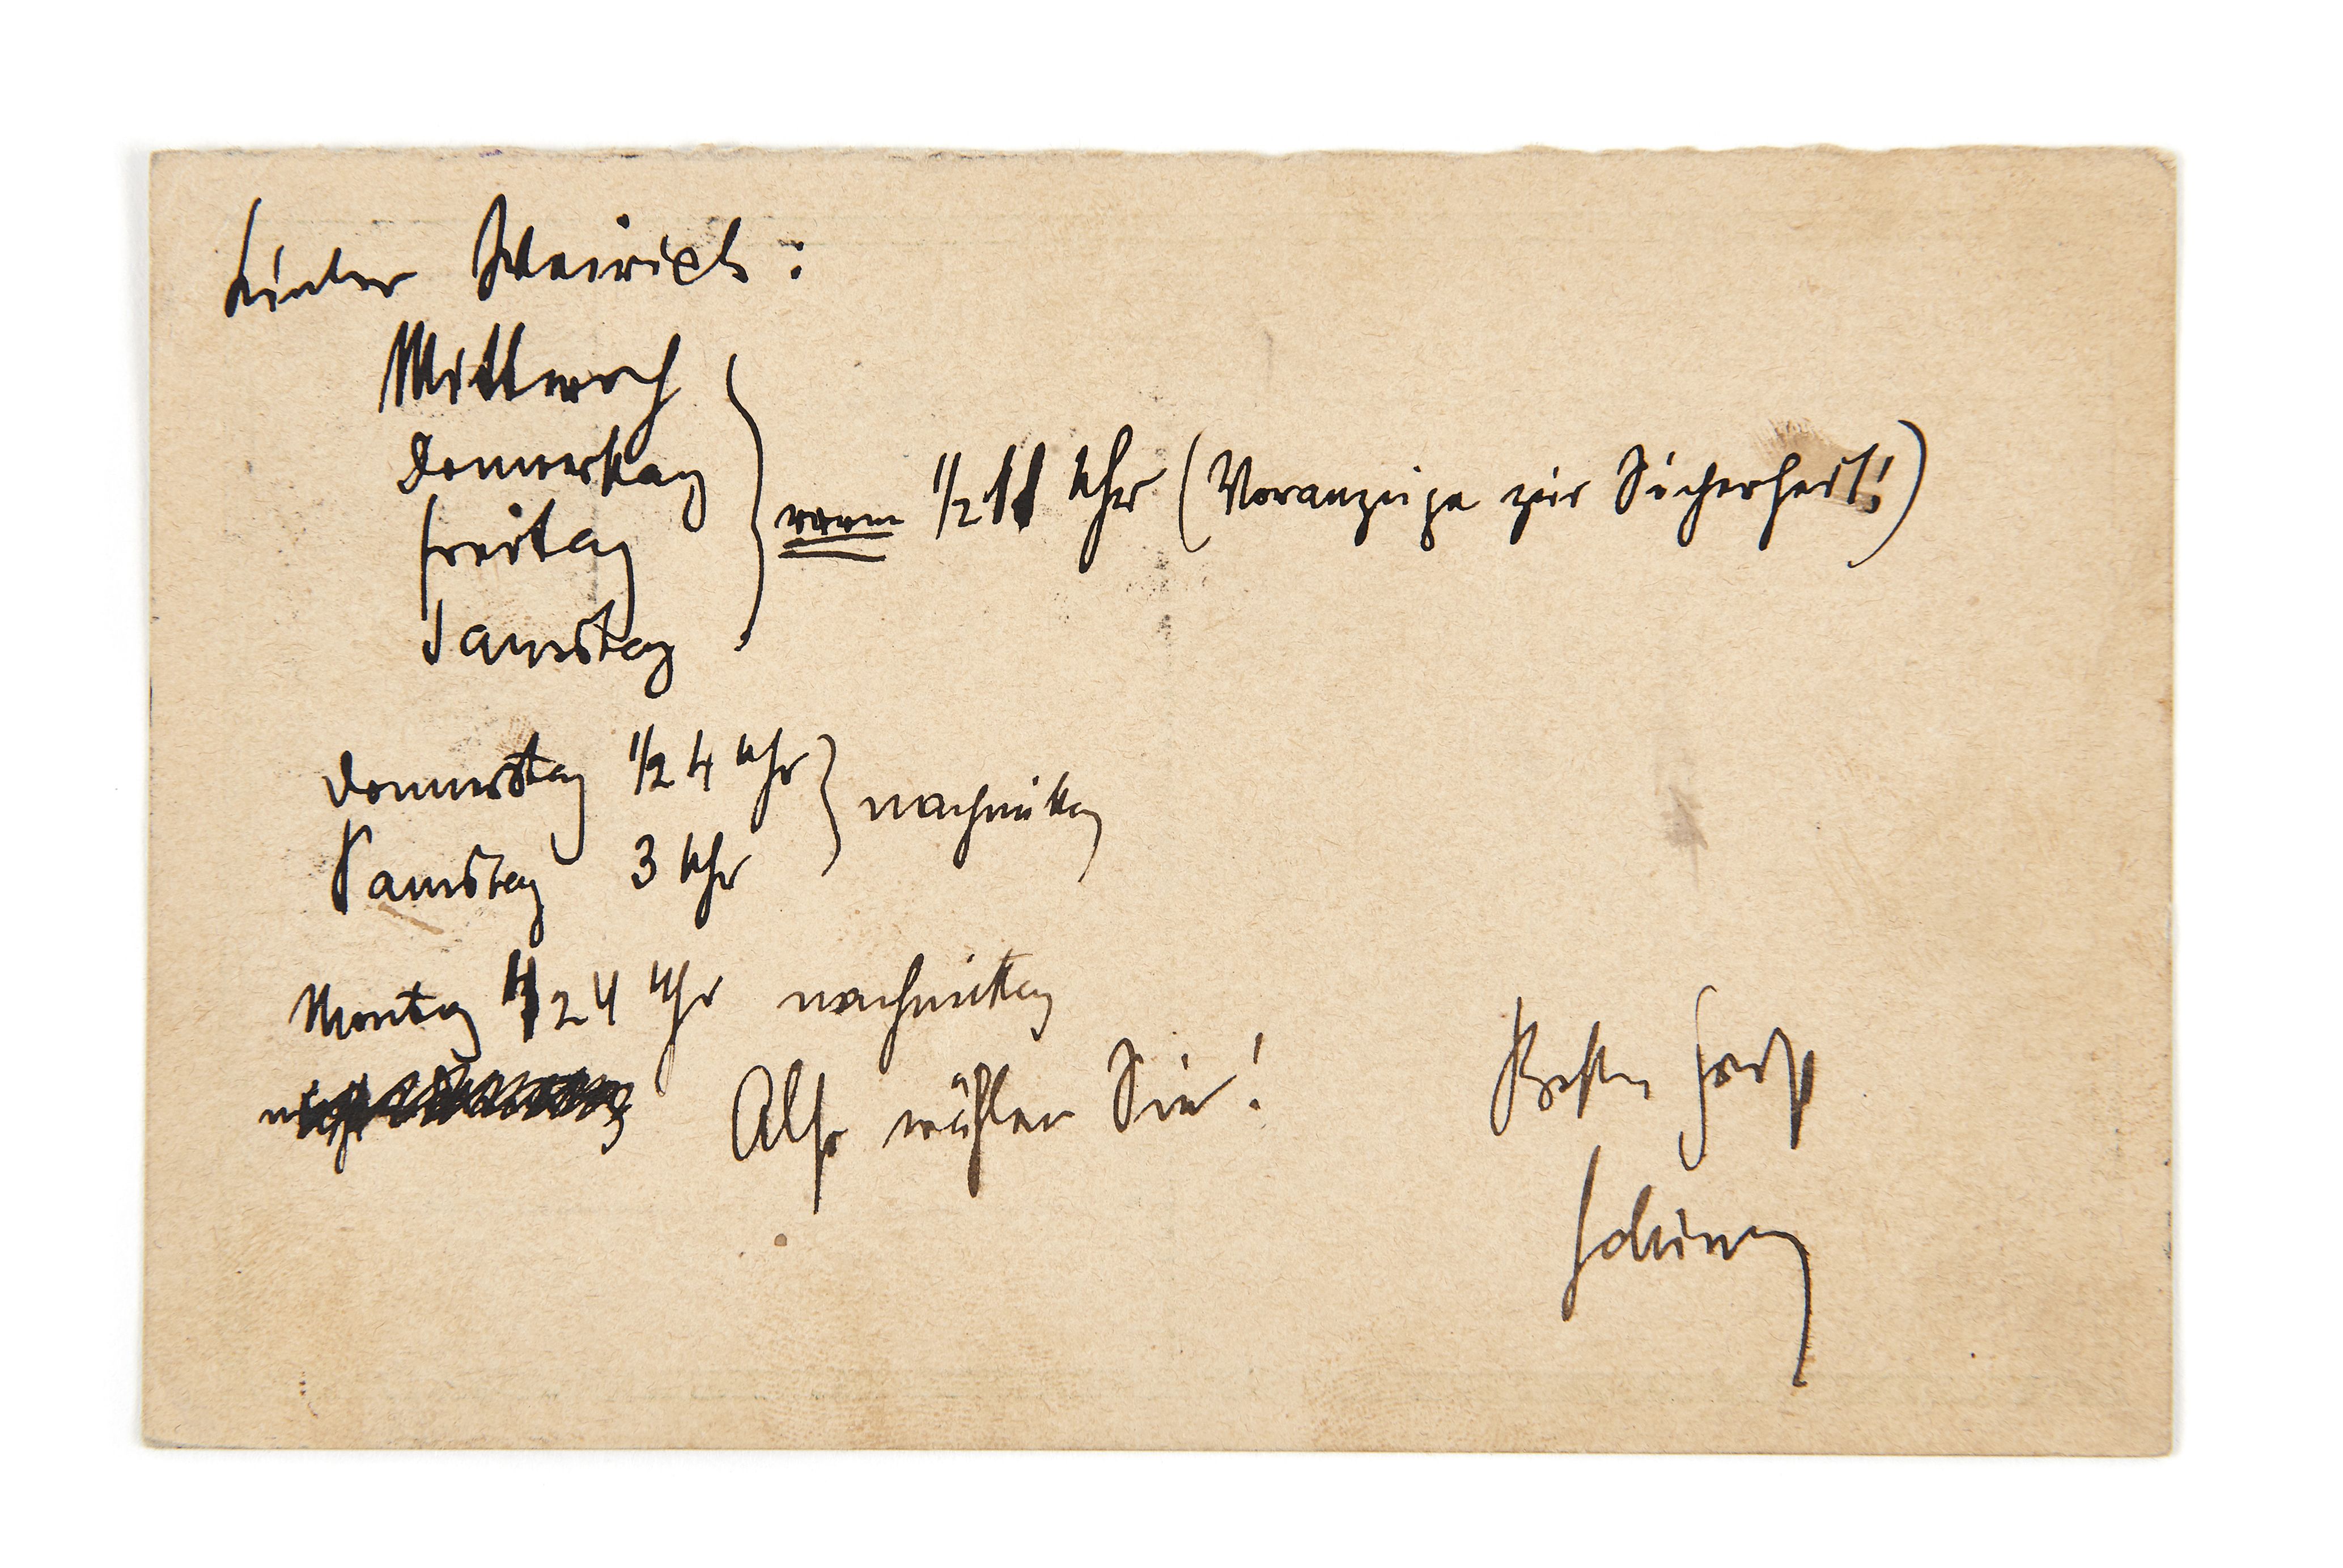 Lieber Weirich:
Mittwoch
Donnerstag
Freitag
Samstag
vorm 1/2 11 Uhr (Voranzeige zur Sicherheit!)
Donnerstag 1/2 4 Uhr
Samstag 3 Uhr
nachmittag
Montag 1/2 4 Uhr nachmittag
Also wählen Sie!
Besten